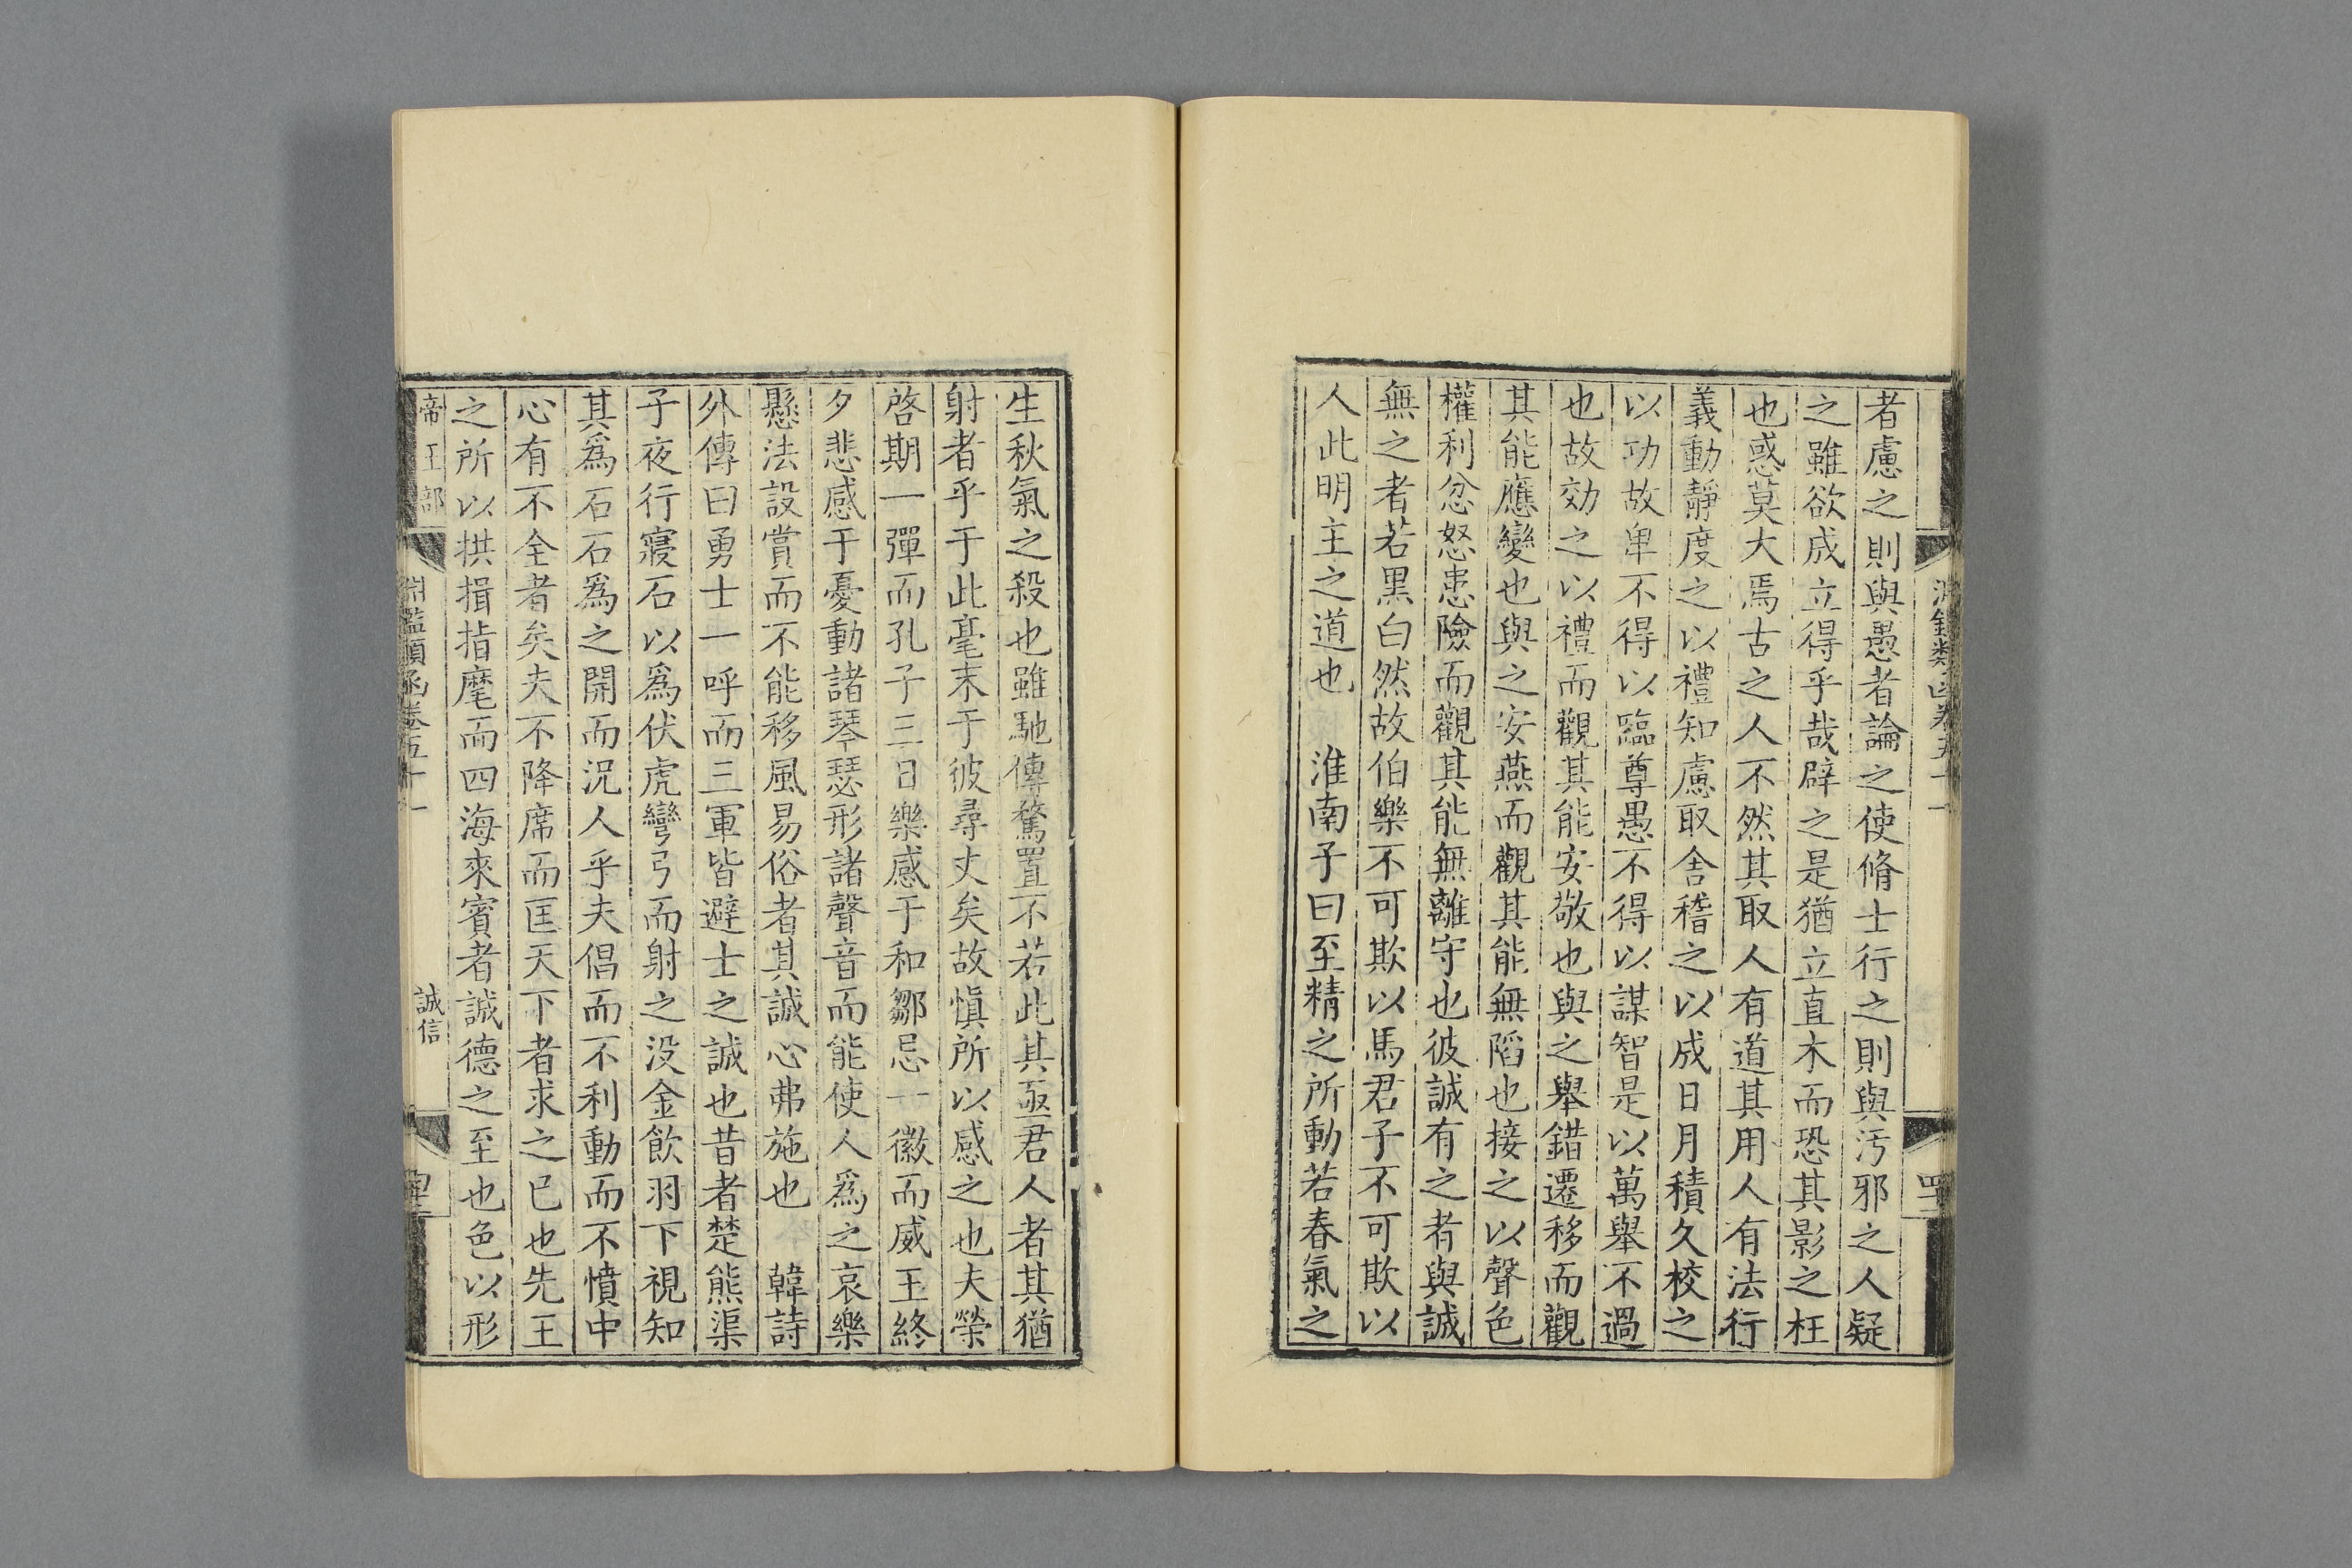 者慮之則與愚者論之使脩士行之則與汚邪之人疑
之雖欲成立得乎哉辟之是猶立直木而恐其影之枉
也惑莫大焉古之人不然其取人有道其用人有法行
義動靜度之以禮知慮取舍稽之以成日月積久校之
以功故卑不得以臨尊愚不得以謀智是以萬舉不過
也故効之以禮而觀其能安敬也與之舉錯遷移而觀
其能應變也與之安燕而觀其能無陷也接之以聲色
權利忿怒患險而觀其能無離守也彼誠有之者與誠
無之者若黑白然故伯樂不可欺以馬君子不可欺以
人此明主之道也　淮南子曰至精之所動若春氣之
生秋氣之殺也雖馳傳騖置不若此其亟君人者其猶
射者乎于此毫末于彼尋丈矣故愼所以感之也夫榮
啓期一彈而孔子三日樂感于和鄒忌一徽而威王終
夕悲感于憂動諸琴瑟形諸聲音而能使人爲之哀樂
懸法設賞而不能移風易俗者其誠心弗施也　韓詩
外傳曰勇士一呼而三軍皆避士之誠也昔者楚熊渠
子夜行寢石以爲伏虎彎弓而射之没金飮羽下視知
其爲石石爲之開而況人乎夫倡而不利動而不憤中
心有不全者矣夫不降席而匡天下者求之已也先王
之所以拱揖指麾而四海來賓者誠德之至也色以形
帝王部　淵鑑類函卷五十一　誠信